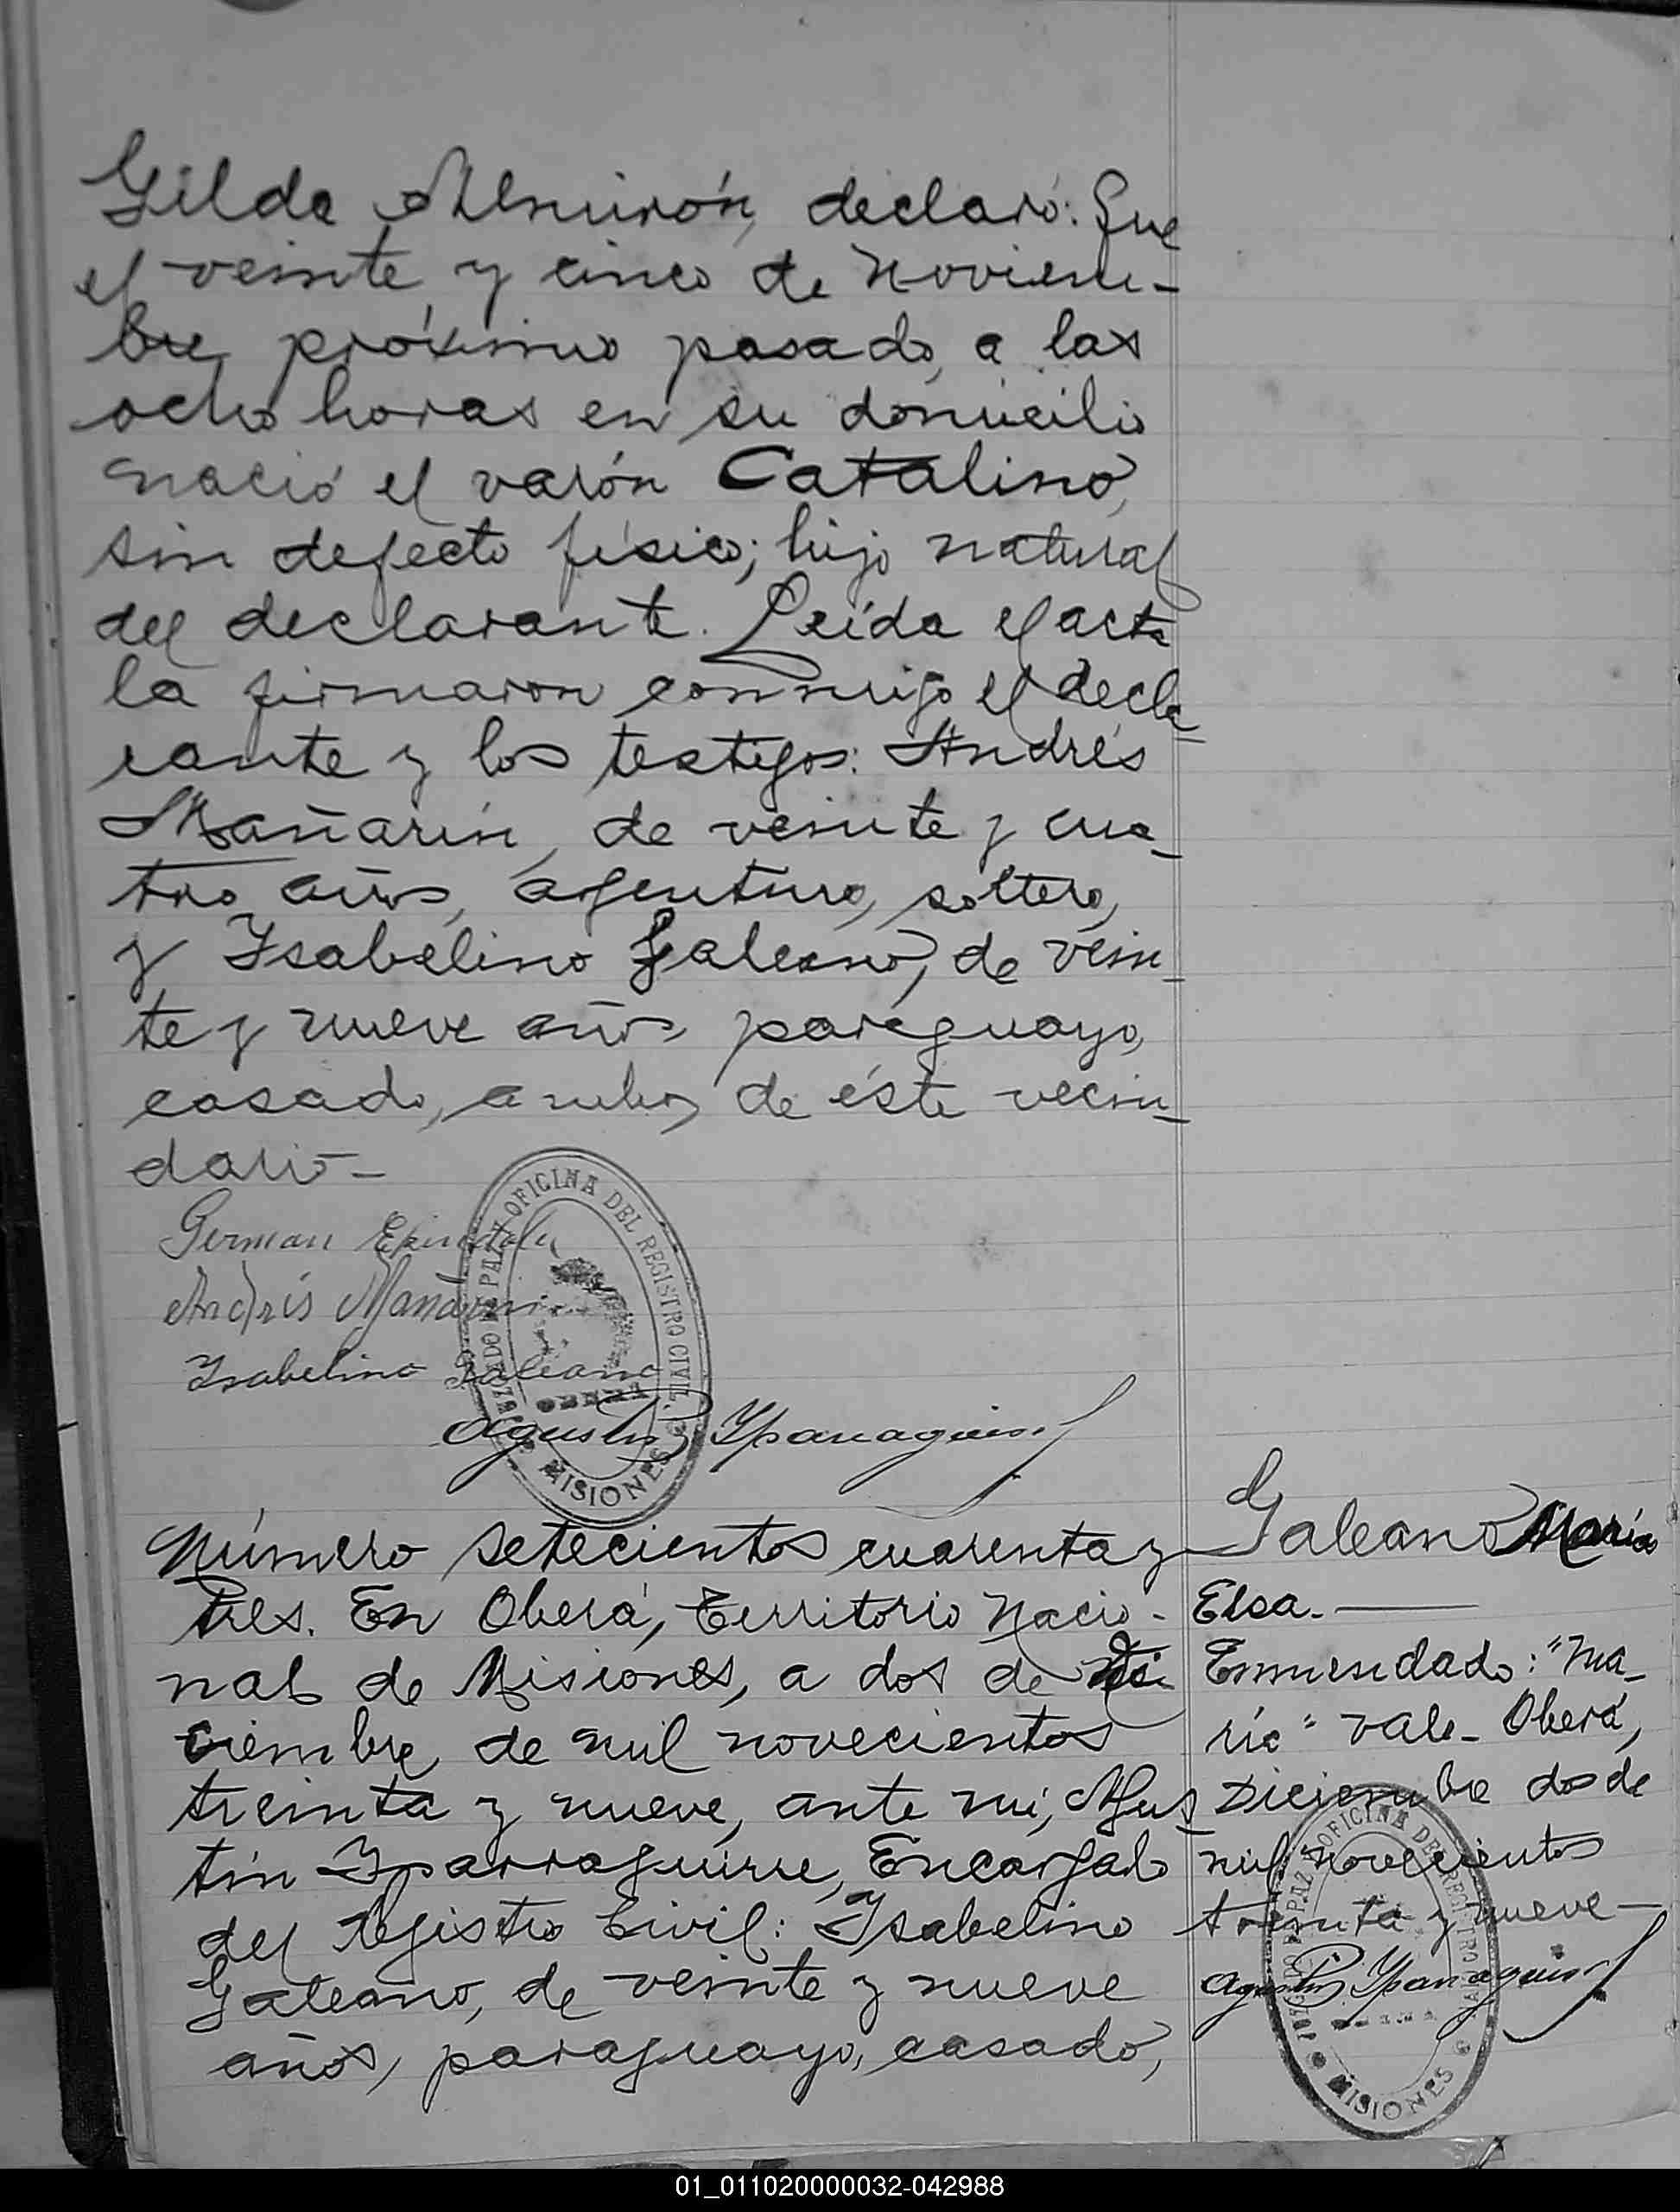 Gilda Almirón, declaró: Que
el veinte y cinco de Noviem-
bre, próximo pasado, a las
ocho horas en su domicilio
nació el varón Catalino,
sin defecto físico; hijo natural
del declarante. Leída el acta
la firmaron conmigo el decla-
rante y los testigos: Andrés
Mañarin, de veinte y cua-
tro años, argentino, soltero,
y Isabelino Galeano, de vein-
te y nueve años paraguayo,
casado, ambos de éste vecin-
dario-
German
Andrés Mañarin
Isabelino Galeano
Agustin Yparraguirre
JUZGADO DE PAZ Y OFICINA DEL REGISTRO CIVIL
OBERA
MISIONES
Número setecientos cuarenta y
tres. En Oberá, Territorio Nacio-
nal de Misiones, a dos de Di
ciembre, de mil novecientos
treinta y nueve, ante mí, Agus-
tín Yparraguirre, Encargado
del Registro Civil: Isabelino
Galeano, de veinte y nueve
años, paraguayo, casado,
Galeano María
Elsa.-
Enmendado: "Ma-
ría" vale- Oberá,
Diciembre dos de
mil novecientos
treinta y nueve-
Agustin Yparraguirre
JUZGADO DE PAZ Y OFICINA DEL REGISTRO CIVIL
OBERA
MISIONES
01_011020000032-042988